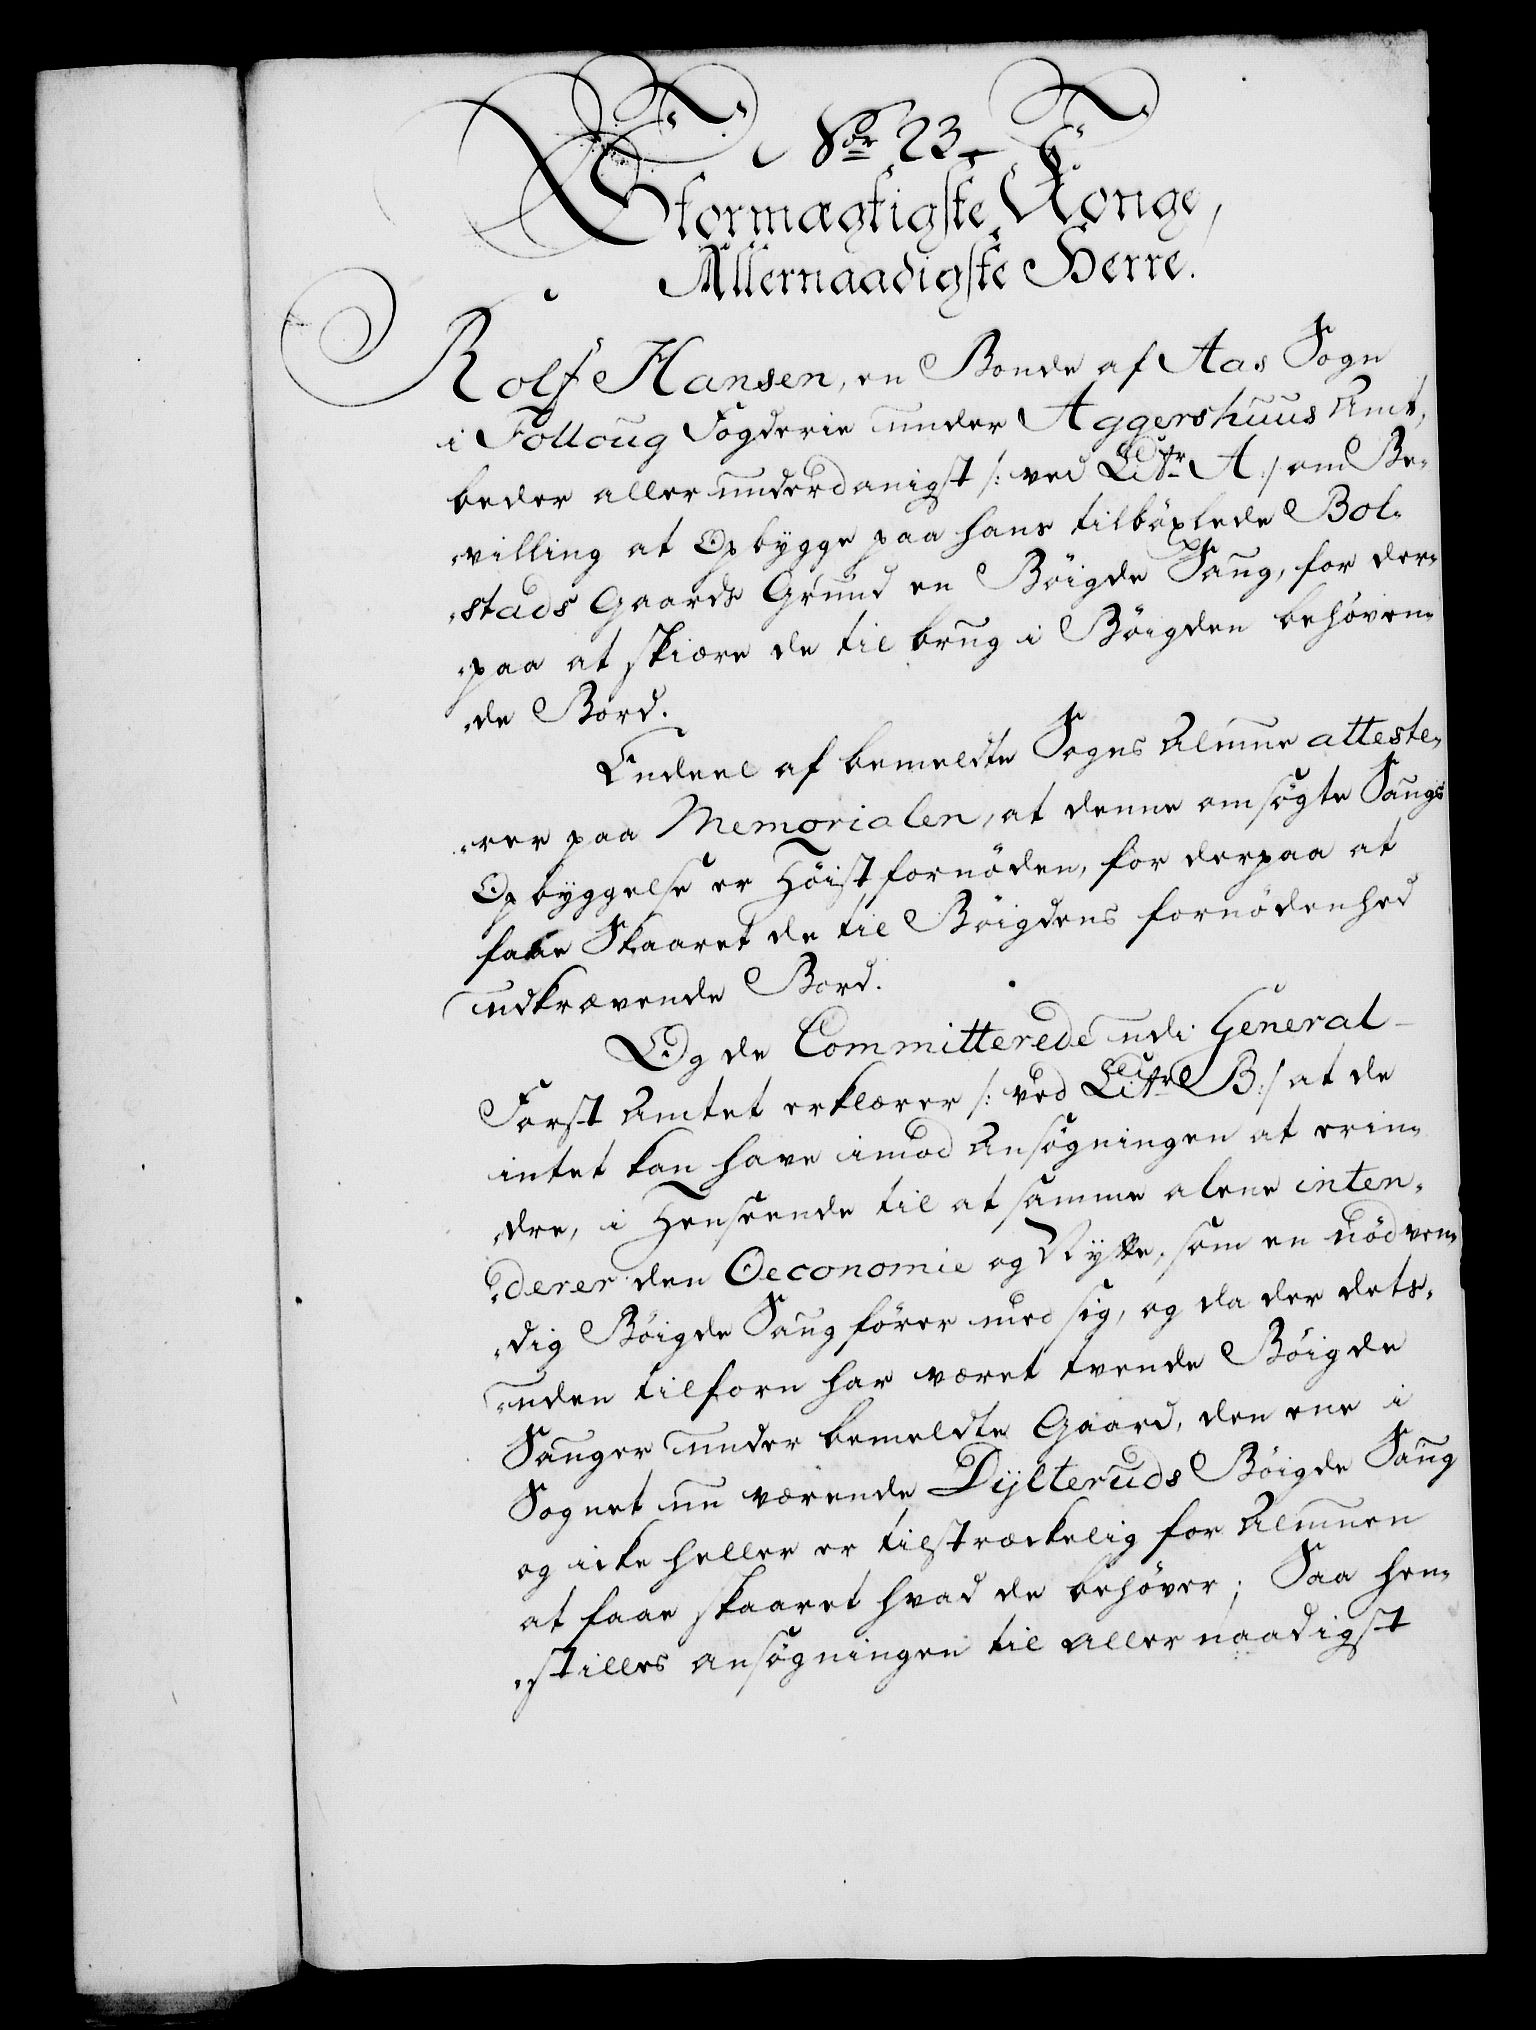 No 23.
Stormægtigste Konge,
Allernaadigste Herre.
Rolf Hansen, en Bonde af Aas Sogn
i Folloug Fogderie under Aggershuus Amt,
beder allerunderdanigst /: ved Litr A :/ om Be-
villing at Opbygge paa hans tilböxlede Bol-
stads Gaards Grund en Böigde Saug, for der-
paa at skiære de til brug i Böigden behöven-
de Bord.
Endeel af bemeldte Sogns Almue atteste-
rer paa Memorialen, at denne omsögte Saugs
Opbyggelse er Höist fornöden, for derpaa at
faae Skaaret de til Böigdens fornödenhed
udkrævende Bord.
Og de Committerede udi General-
Forst Amtet erklærer /: ved Litr B :/ at de
intet kan have imod Ansögningen at erin-
dre, i Henseende til at samme alene inten-
derer den Oeconomie og Nytte, som en nödven-
dig Böigde Saug förer med sig, og da der dets-
uden tilforn har været tvende Böigde
Sauger under bemeldte Gaard, den ene i
Sognet nu værende Dÿlteruds Böigde Saug
og icke heller er tilstræckelig for Almuen
at faae skaaret hvad de behöver; Saa hen-
stilles ansögningen til allernaadigst